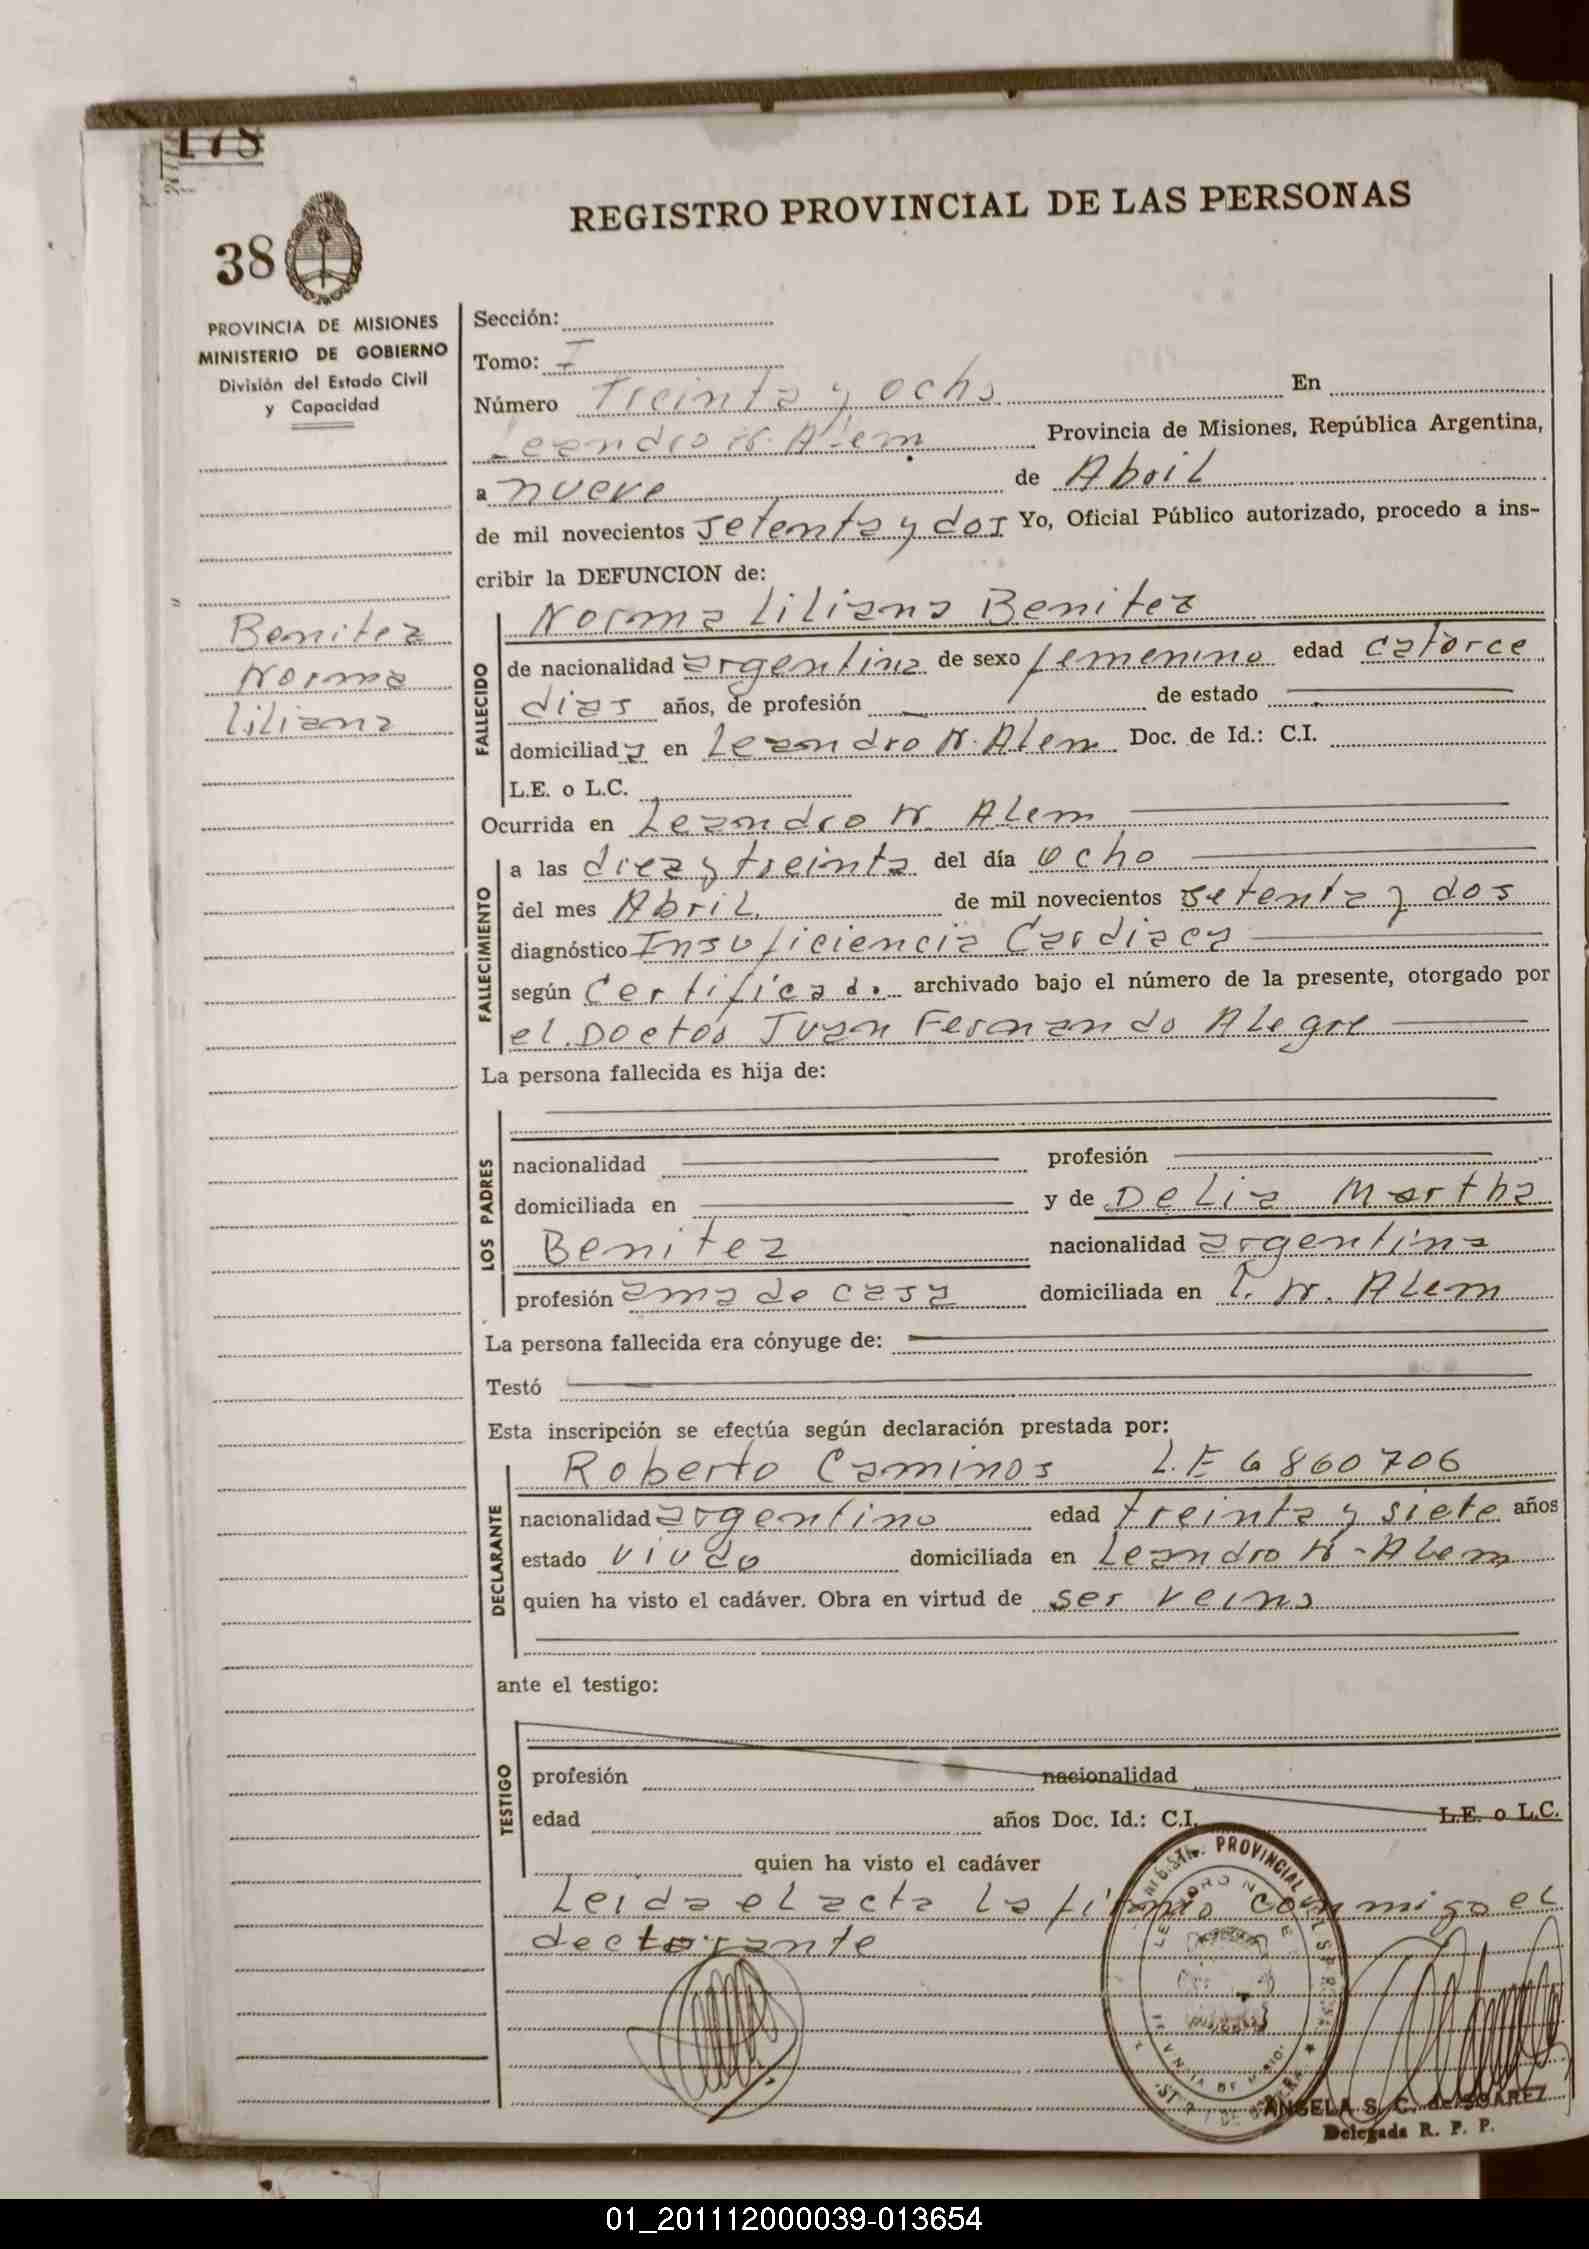 178
38
REGISTRO PROVINCIAL DE LAS PERSONAS
PROVINCIA DE MISIONES
MINISTERIO DE GOBIERNO
División del Estado Civil
y Capacidad
Benitez
Norma
Liliana
Sección:
Tomo: I
Número Treinta y ocho En
Leandro N. Alem Provincia de Misiones, República Argentina,
a nueve de Abril
de mil novecientos setenta y dos Yo, Oficial Público autorizado, procedo a ins-
cribir la DEFUNCION de:
FALLECIDO
Norma Liliana Benitez
de nacionalidad argentina de sexo femenino edad catorce
dias años, de profesión de estado
domiciliada en Leandro N. Alem Doc. de Id.: C.I.
L.E. o L.C.
Ocurrida en Leandro N. Alem
FALLECIMIENTO
a las diez y treinta del día ocho
del mes Abril de mil novecientos setenta y dos
diagnóstico Insuficiencia Cardiaca
según Certificado archivado bajo el número de la presente, otorgado por
el Doctor Juan Fernando Alegre
La persona fallecida es hija de:
LOS PADRES
nacionalidad profesión
domiciliada en y de Delia Martha
Benitez nacionalidad argentina
profesión ama de casa domiciliada en L. N. Alem
La persona fallecida era cónyuge de:
Testó
Esta inscripción se efectúa según declaración prestada por:
DECLARANTE
Roberto Caminos L.E 6860706
nacionalidad argentino edad treinta y siete años
estado viudo domiciliada en Leandro N. Alem
quien ha visto el cadáver. Obra en virtud de ser veino
ante el testigo:
TESTIGO
profesión nacionalidad
edad años Doc. Id.: C.I. L.E. o L.C.
quien ha visto el cadáver
Leida el acta la firma conmigo el
declarante
ANGELA S. C. de SUAREZ
Delegada R. P. P.
01_201112000039-013654